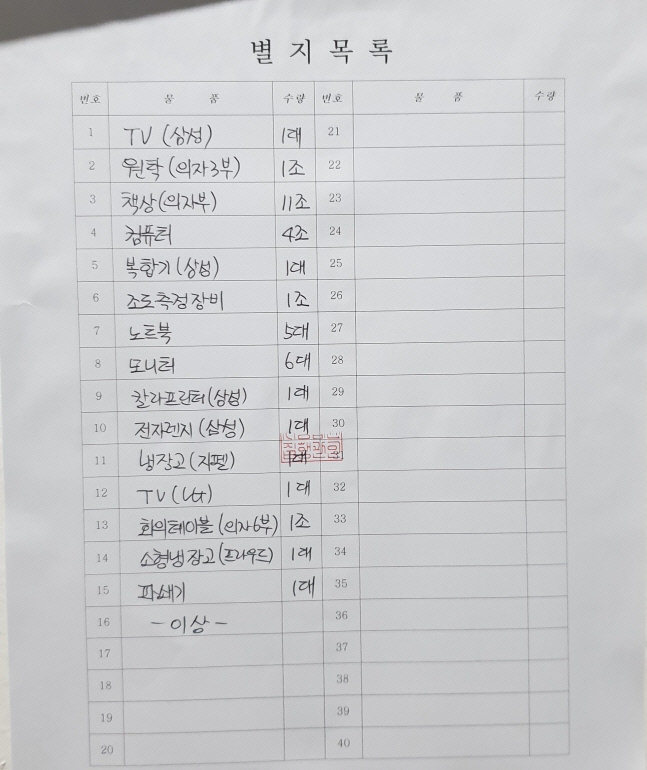 별 지 목 록
번호 물 품 수량 번호 물 품 수량
1 TV (삼성) 1대 21
2 원탁 (의자3부) 1조 22
3 책상 (의자부) 11조 23
4 컴퓨터 4조 24
5 복합기 (삼성) 1대 25
6 조도측정장비 1조 26
7 노트북 5대 27
8 모니터 6대 28
9 칼라프린터 (삼성) 1대 29
10 전자렌지 (삼성) 1대 30
11 냉장고 (지펠) 1대
12 TV (LG) 1대 32
13 회의테이블 (의자6부) 1조 33
14 소형냉장고 (프라우드) 1대 34
15 파쇄기 1대 35
16 - 이상 - 36
17 37
18 38
19 39
20 40